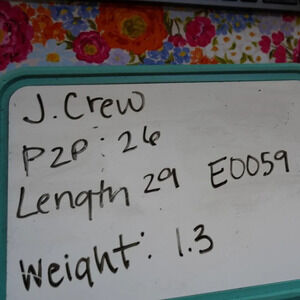 J. Crew
P2P: 26
Length 29 E0059
Weight: 1.3